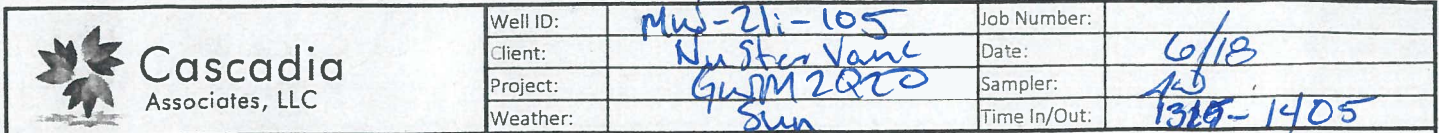 Cascadia
Associates, LLC
Well ID: MW-21i-105 Job Number:
Client: NuStar Vanc Date: 6/18
Project: GWM 2Q20 Sampler:
Weather: Sun Time In/Out: - 1405